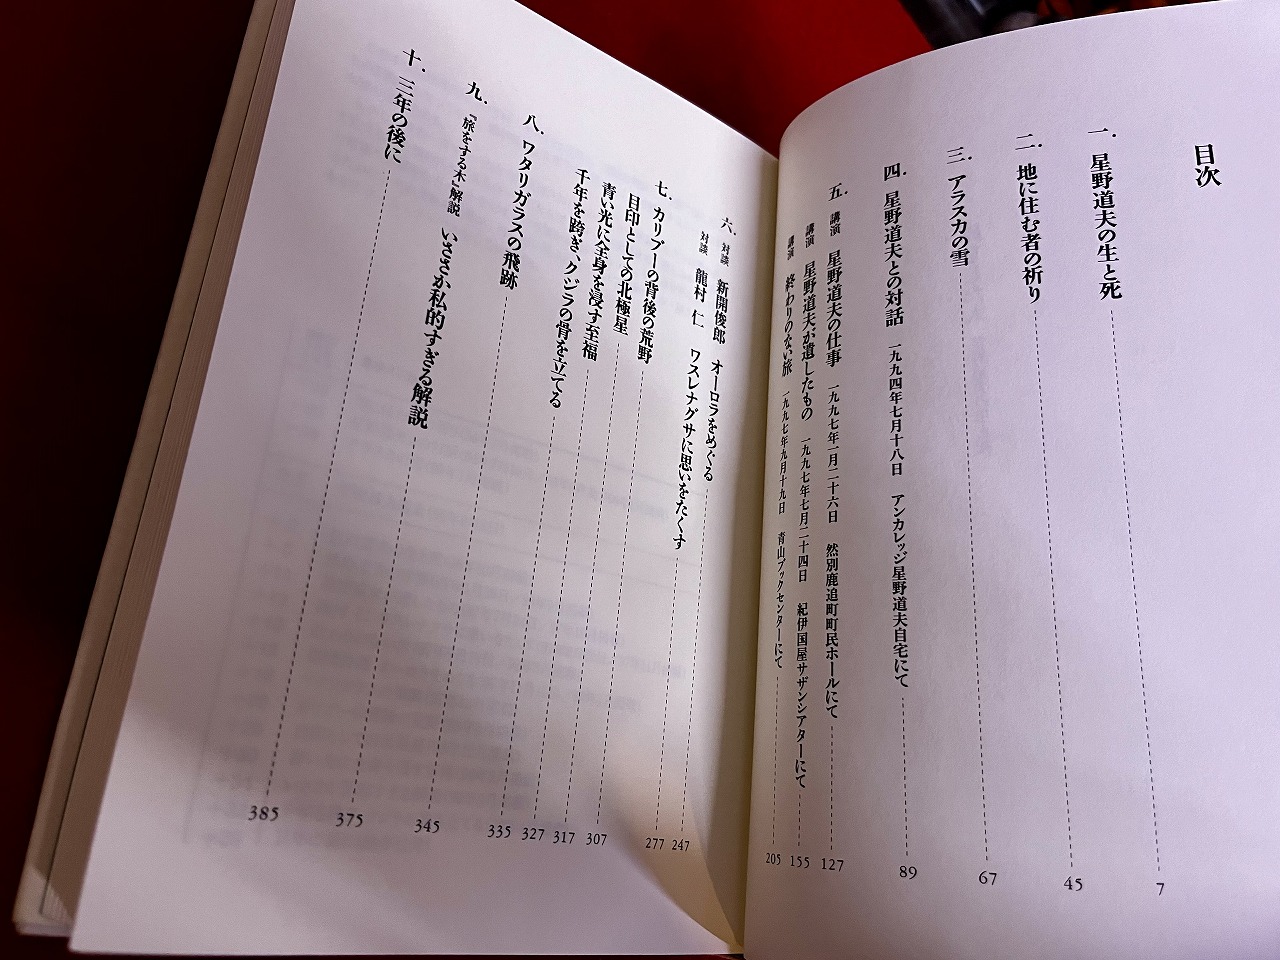 目次
一. 星野道夫の生と死 7
二. 地に住む者の祈り 45
三. アラスカの雪 67
四. 星野道夫との対話 一九九四年七月十八日 アンカレッジ星野道夫自宅にて 89
五. 講演 星野道夫の仕事 一九九七年一月二十六日 然別鹿追町町民ホールにて 127
講演 星野道夫が遺したもの 一九九七年七月二十四日 紀伊国屋サザンシアターにて 155
講演 終わりのない旅 一九九七年九月十九日 青山ブックセンターにて 205
六. 対談 新開俊郎 オーロラをめぐる 247
対談 龍村 仁 ワスレナグサに思いをたくす 277
七. カリブーの背後の荒野 307
目印としての北極星 317
青い光に全身を浸す至福 327
千年を跨ぎ、クジラの骨を立てる 335
八. ワタリガラスの飛跡 345
九. 『旅をする木』解説 いささか私的すぎる解説 375
十. 三年の後に 385